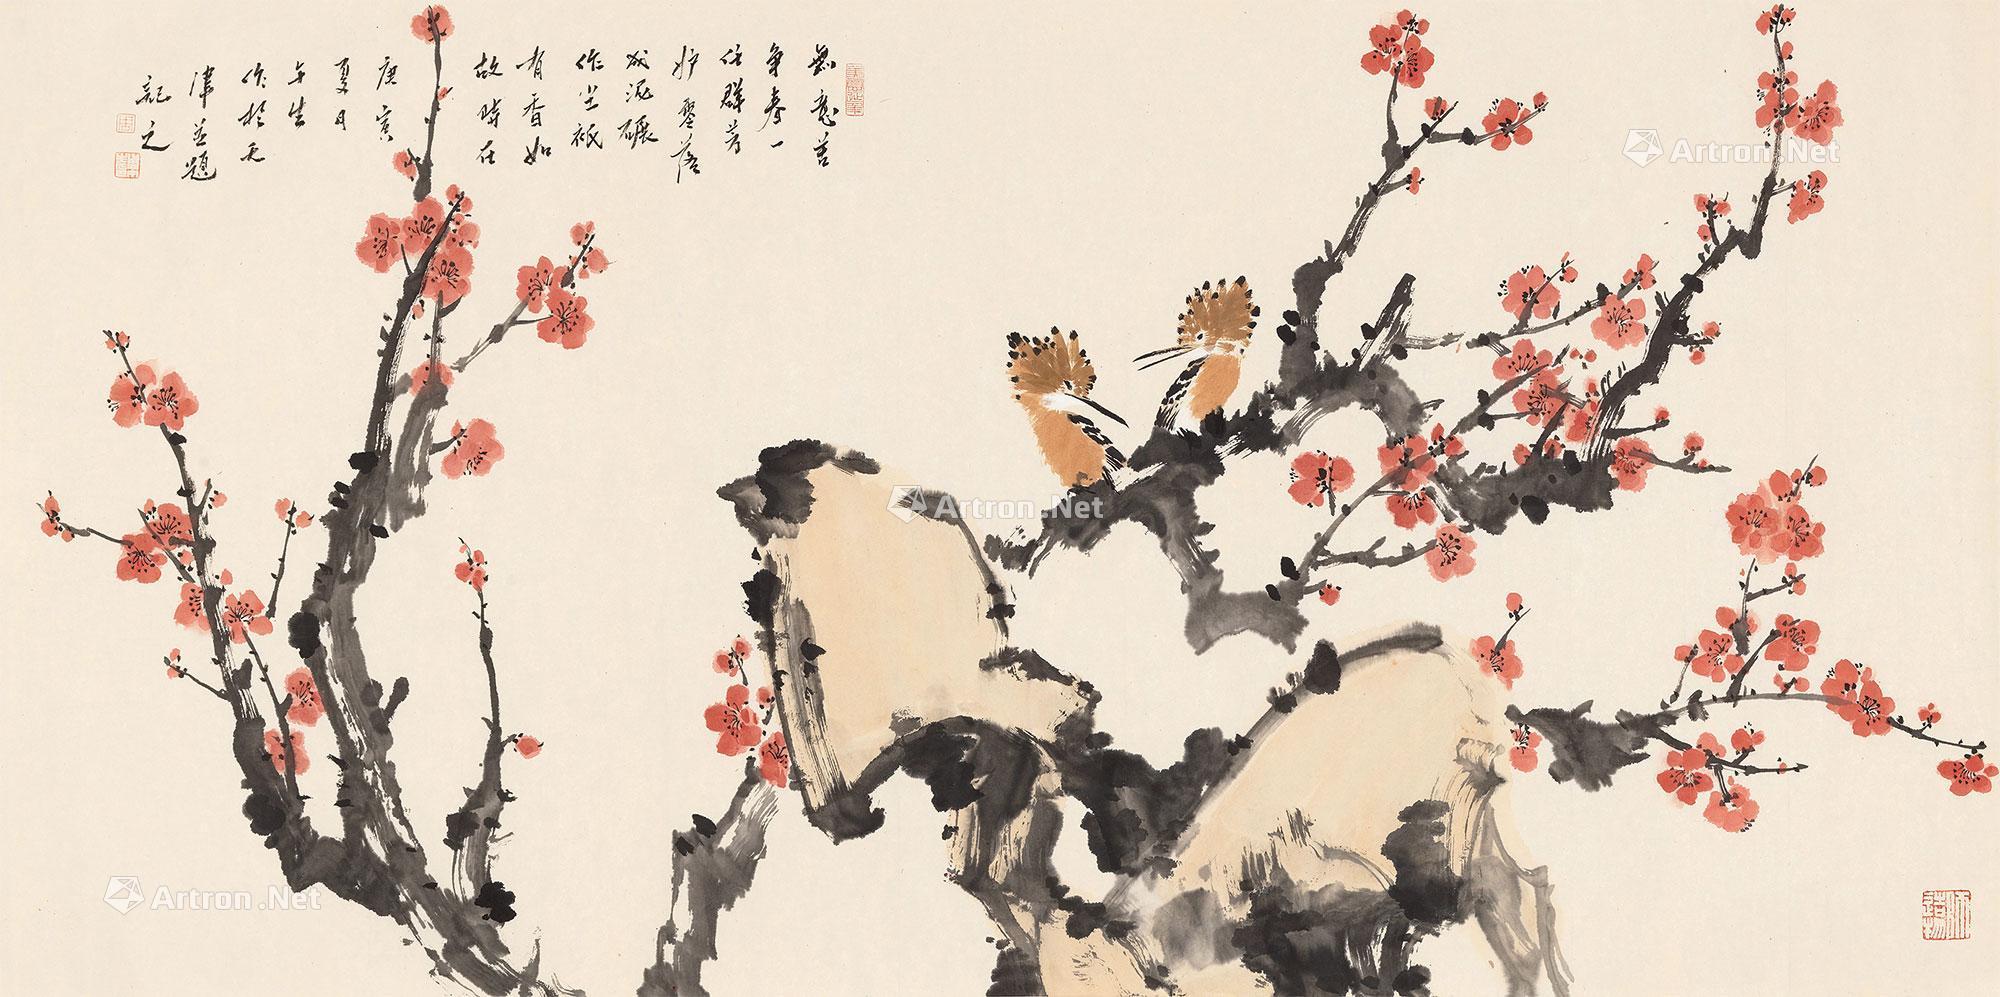 無意苦
争春一
任群芳
妒零落
成泥碾
作尘祇
有香如
故時在
庚寅
夏月
午生
作於天
津並題
記之
Artron.Net
Artron.Net
Artron.Net
師造物